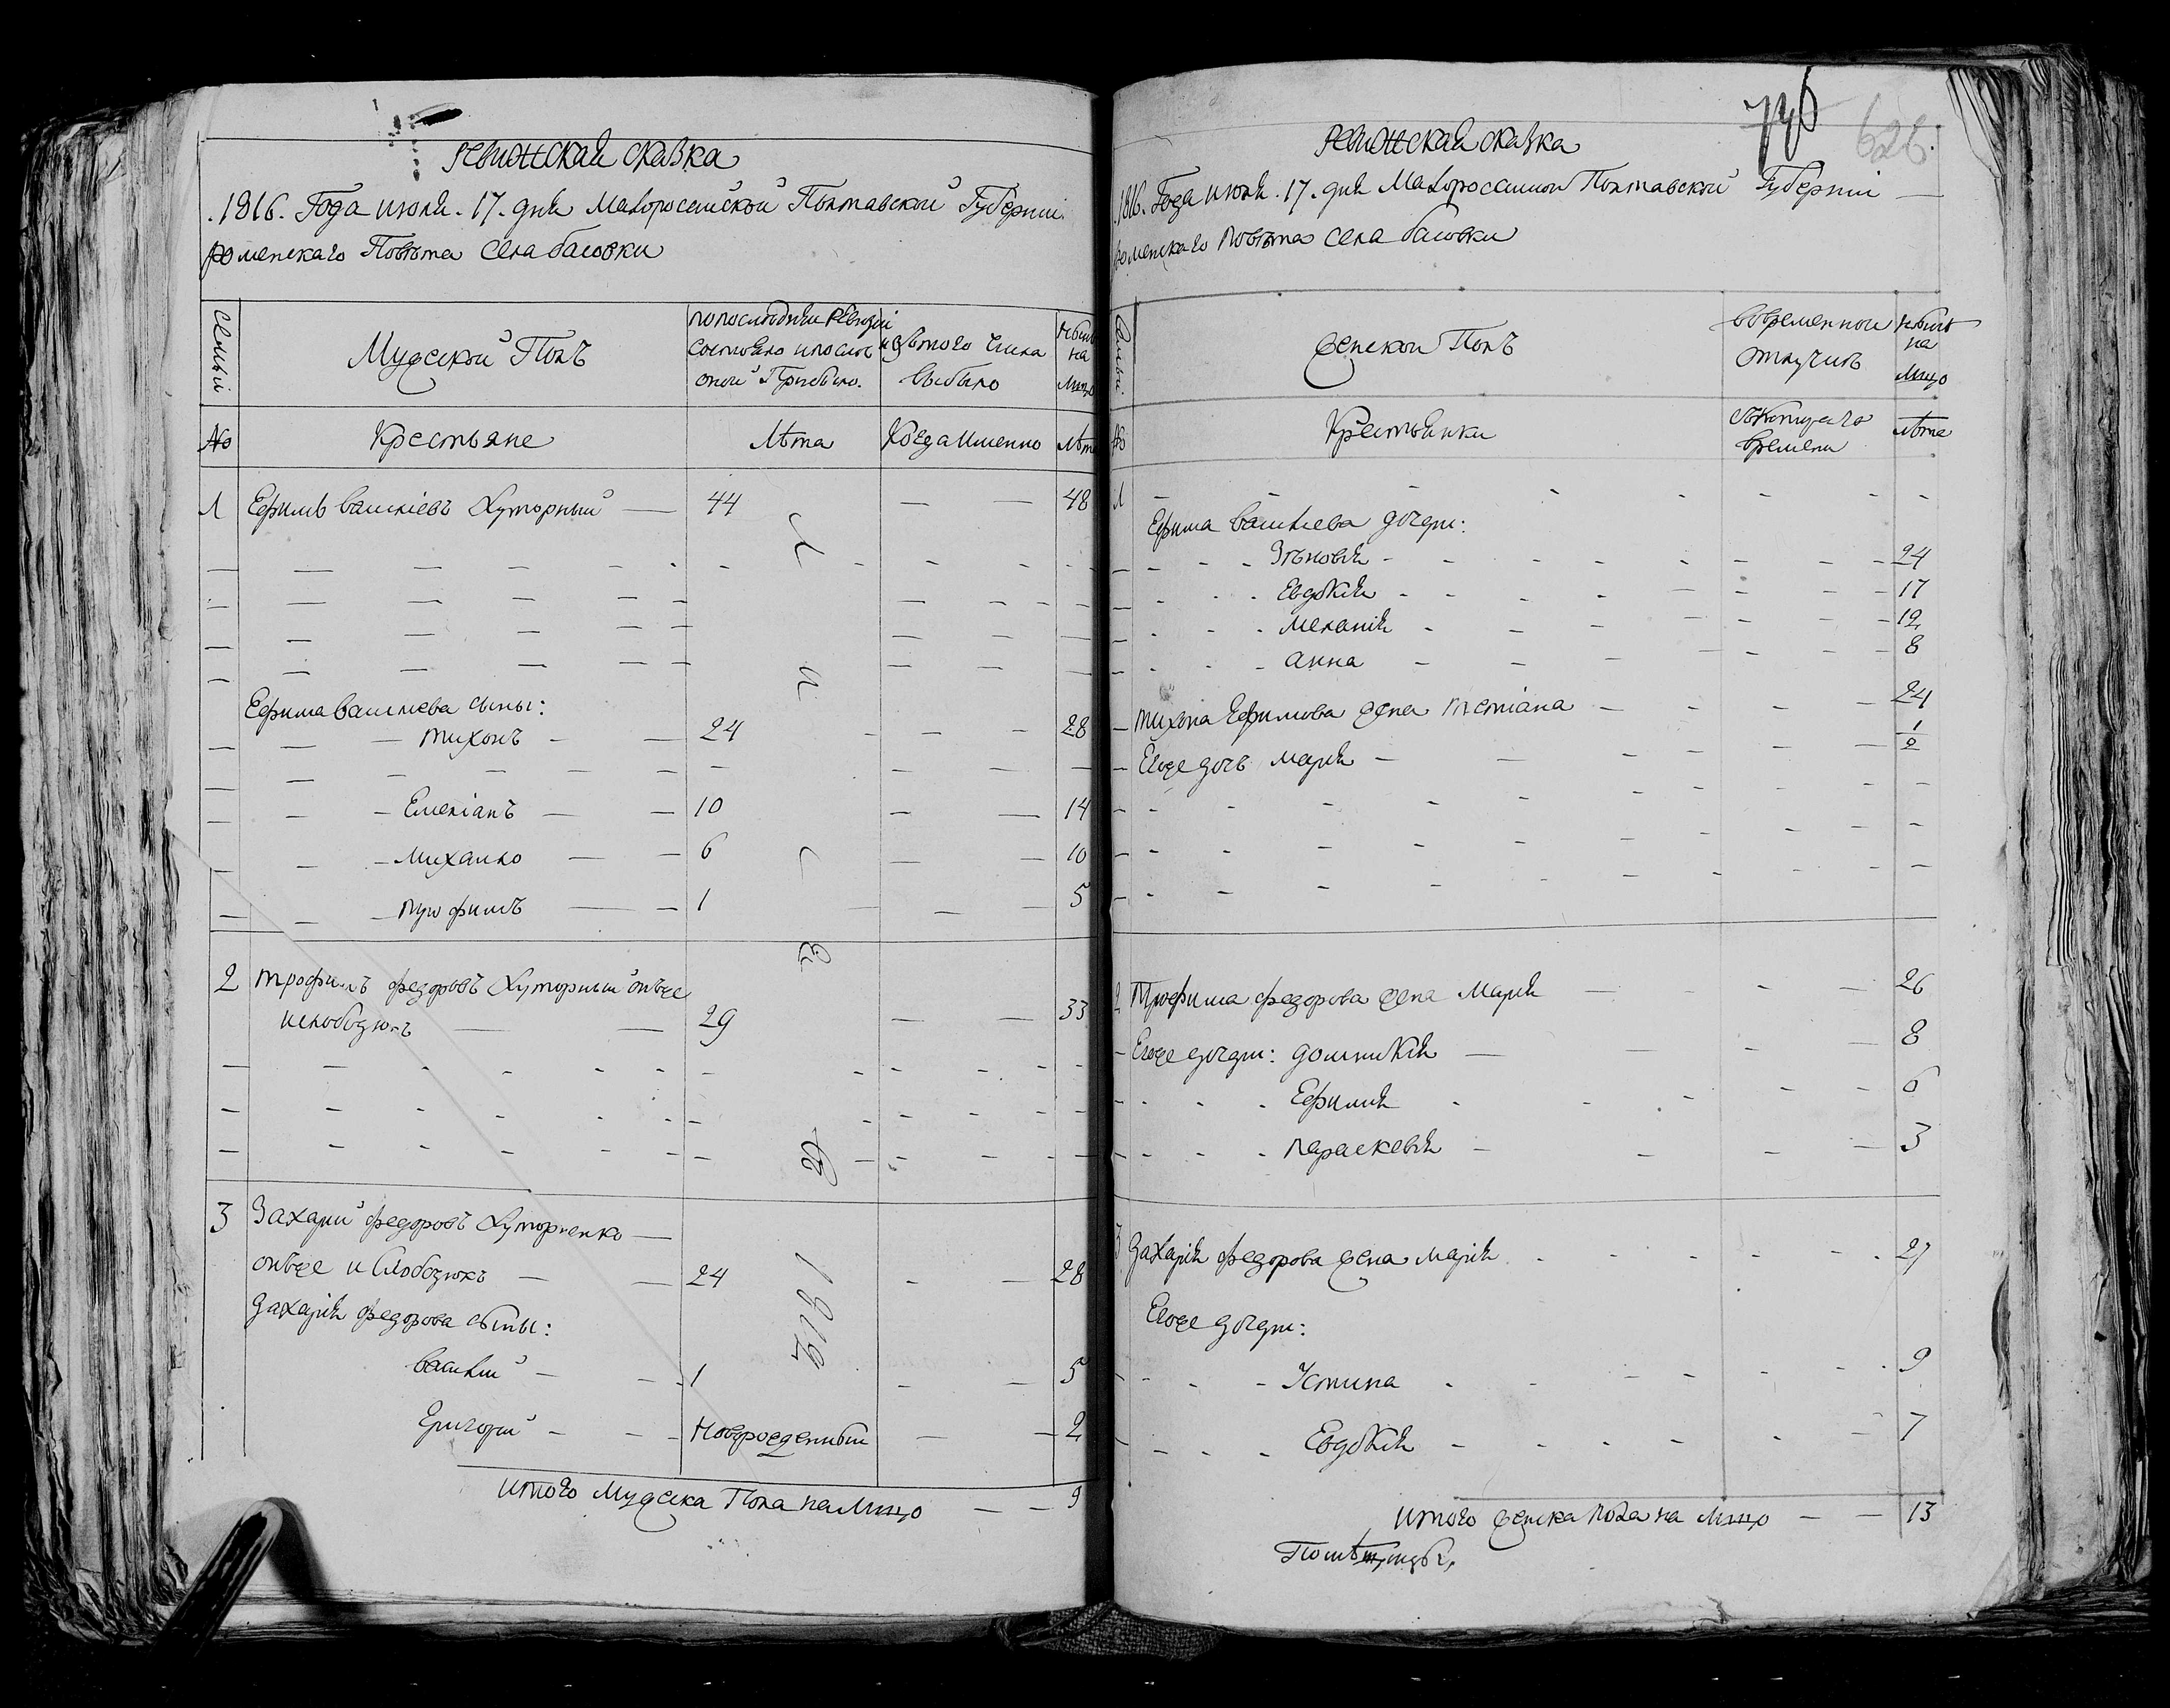 Ревижская сказка
.1816. Года июля. 17. дня Малоросейской Полтавской Губернии
роменскаго Повѣта села басовки
Семьи
Мужеской Полъ
попоследней Ревизіи состояло ипосле оной Прибыло.
изътого Числа выбыло
Нынѣ на лицо
№
Крестьяне
Лѣта
Когда Именно
Лѣта
1 Ефимъ василіевъ Хуторный 44 48
Ефима василиева сыны:
тихонъ 24 28
Емеліанъ 10 14
Михайло 6 10
трофимъ 1 5
2 трофимъ федоровъ Хуторный онъже
ислободзюкъ 29 33
3 Захарий федоровъ Хуторненко
онъже и Слободзюкъ 24 28
Захарія федорова сыны:
василий 1 5
Григорий Новорожденный 2
итого Мужеска Пола налицо 9
1812
736
626.
Ревижская сказка
.1816. Года июля. 17. дня Малоросейской Полтавской Губерніи
роменскаго повѣта села басовки
Семьи.
Женской Полъ
вовременной отлучкѣ
Нынѣ на лицо
№
Крестьянки
съкотораго времени
лѣта
1
Ефима василиева дочери:
Зѣновія 24
Евдокія 17
меланія 12
анна 8
тихона Ефимова жена тетіана 24
Егоже дочь марія 1/2
2 Трофима федорова жена Марія 26
Егоже дочери: домникія 8
Ефимия 6
параскевія 3
3 Захарія федорова жена марія 27
Егоже дочери:
Устина 9
Евдокія 7
итого женска пола на лицо 13